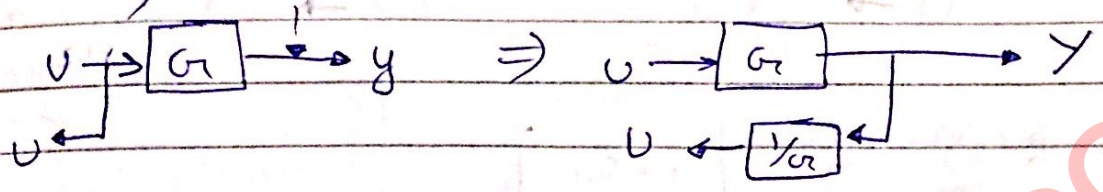 U → G → y ⇒ U → G → Y
U ← U ← 1/G ←